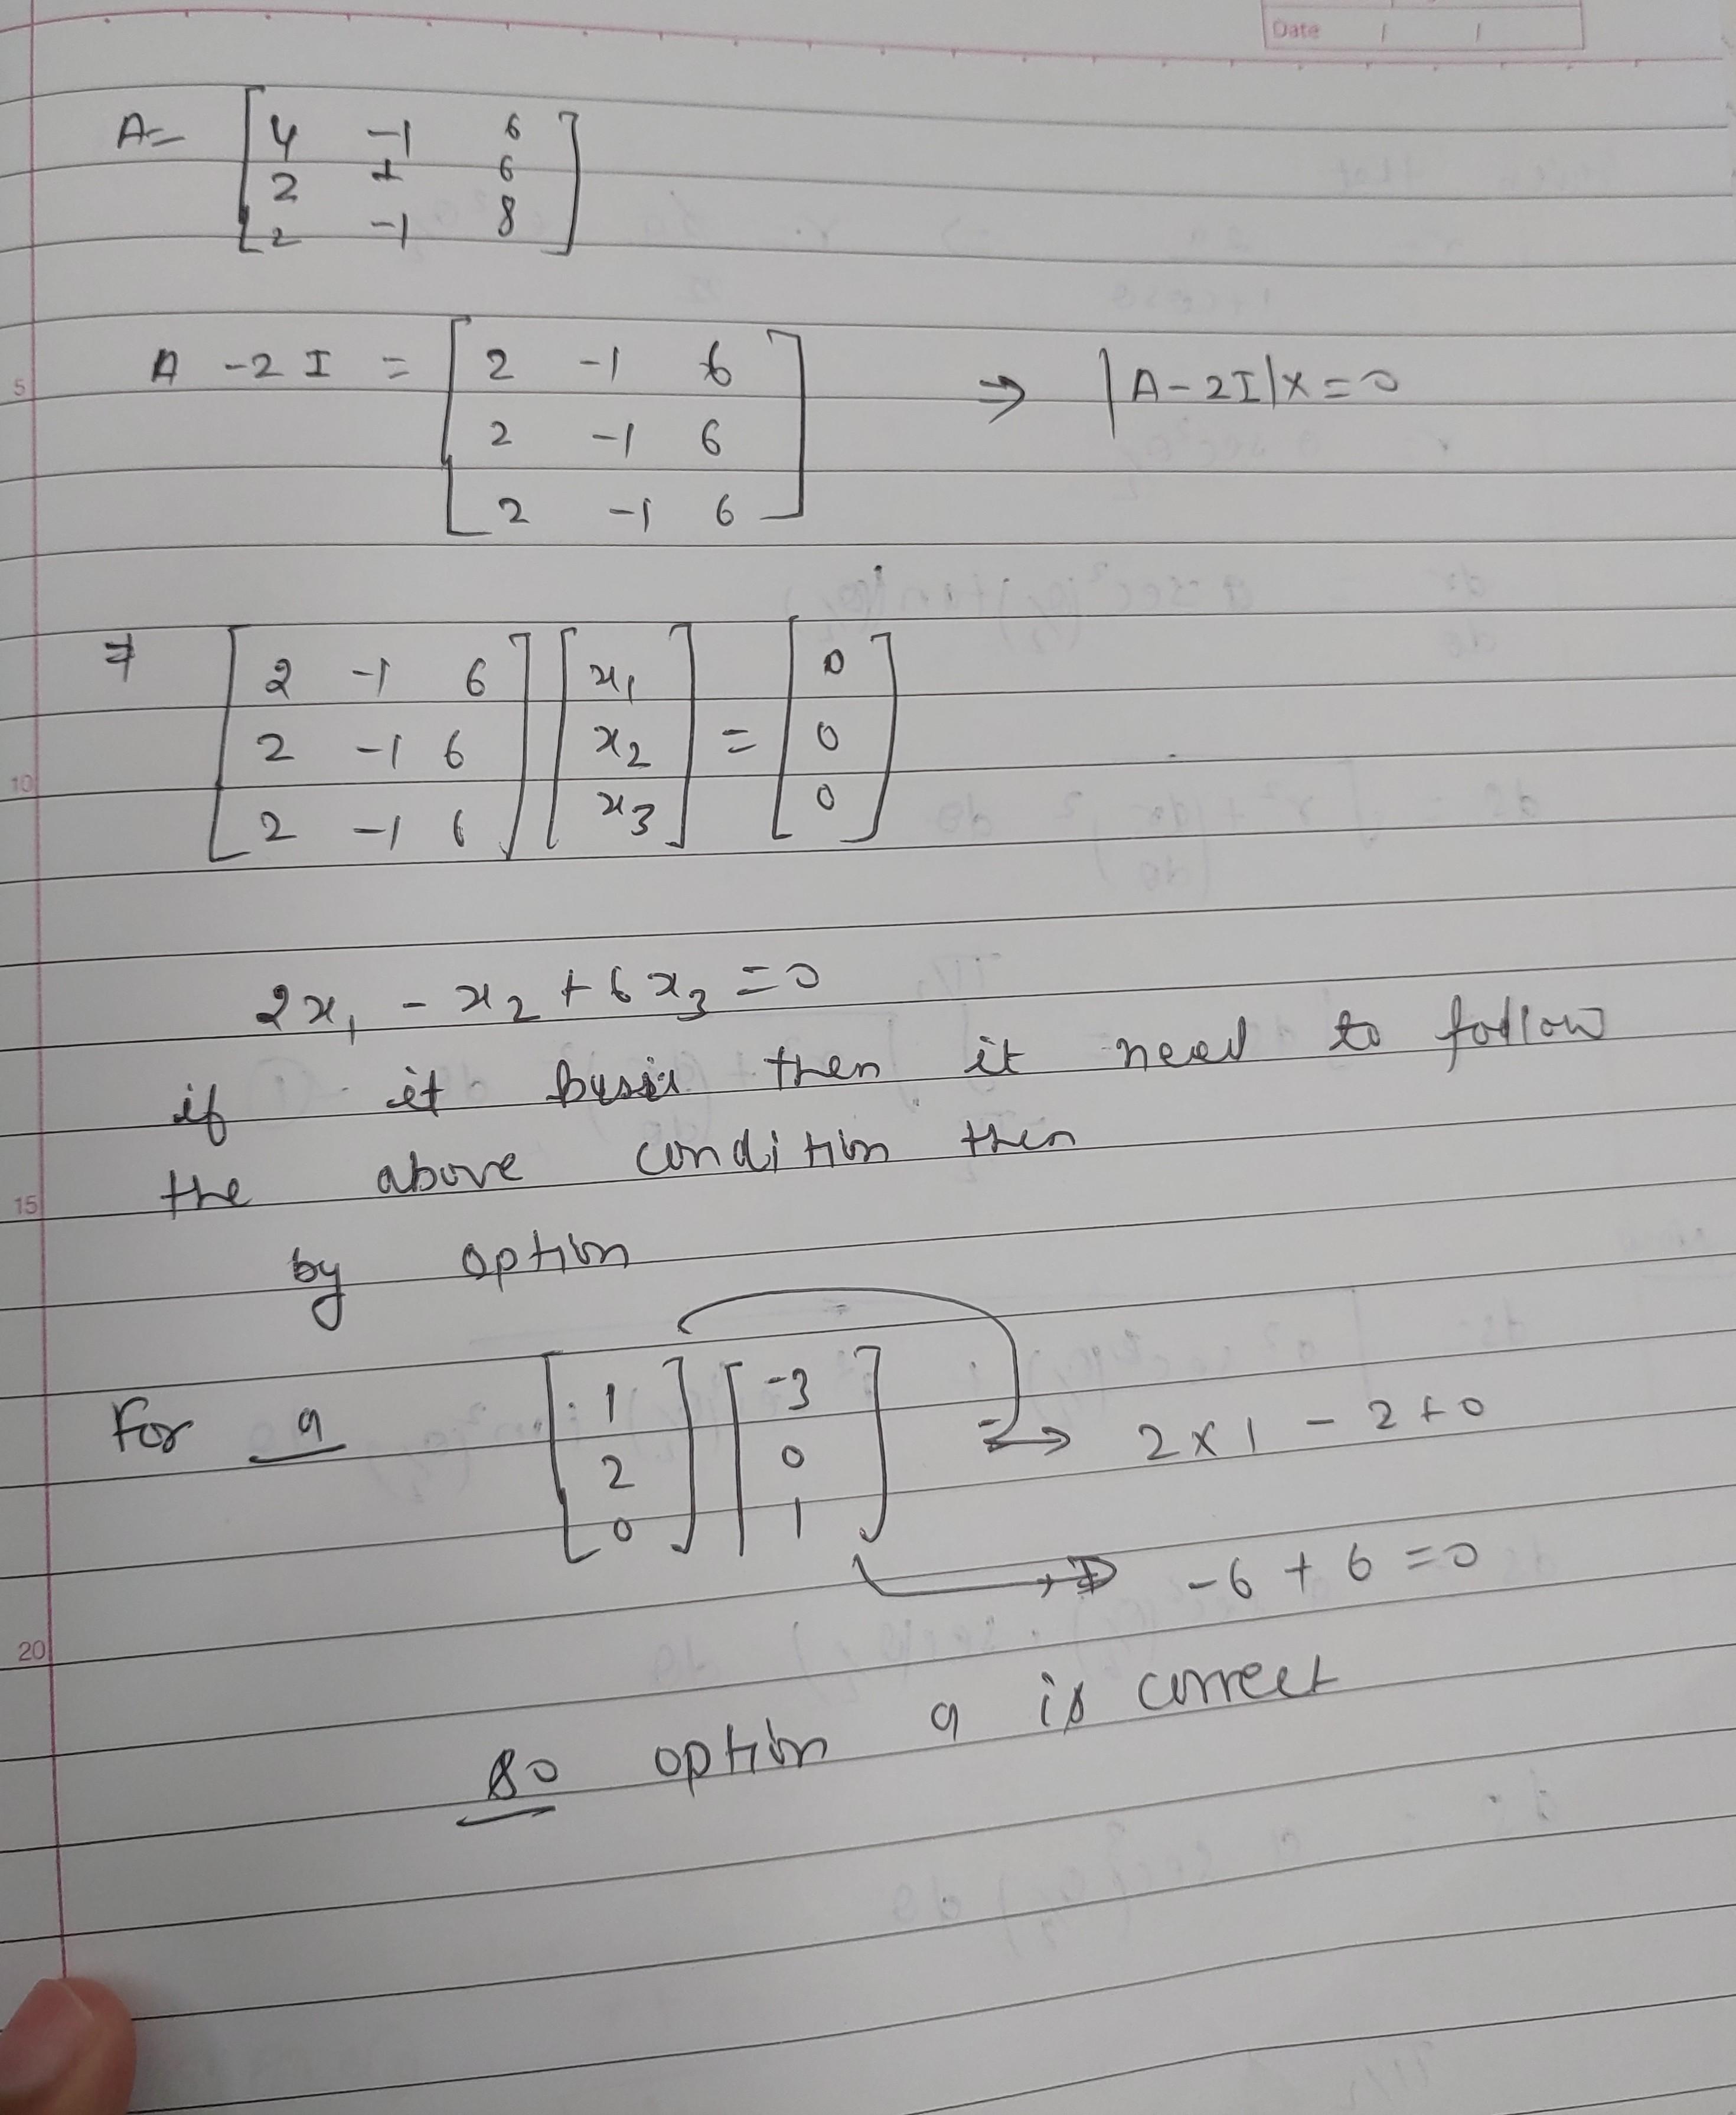 Date / /
A= [ 4 -1 6
2 1 6
2 -1 8 ]
5
A - 2 I = [ 2 -1 6
2 -1 6
2 -1 6 ] ⇒ |A - 2I|X = 0
⇒ [ 2 -1 6 ] [ x1 ] = [ 0 ]
[ 2 -1 6 ] [ x2 ] = [ 0 ]
10
[ 2 -1 6 ] [ x3 ] [ 0 ]
2x1 - x2 + 6x3 = 0
if it basis then it need to follow
the above condition then
15
by option
For a [ 1 ] [ -3 ] ⇒ 2 × 1 - 2 + 0
[ 2 ] [ 0 ]
[ 0 ] [ 1 ] → -6 + 6 = 0
20
so option a is correct